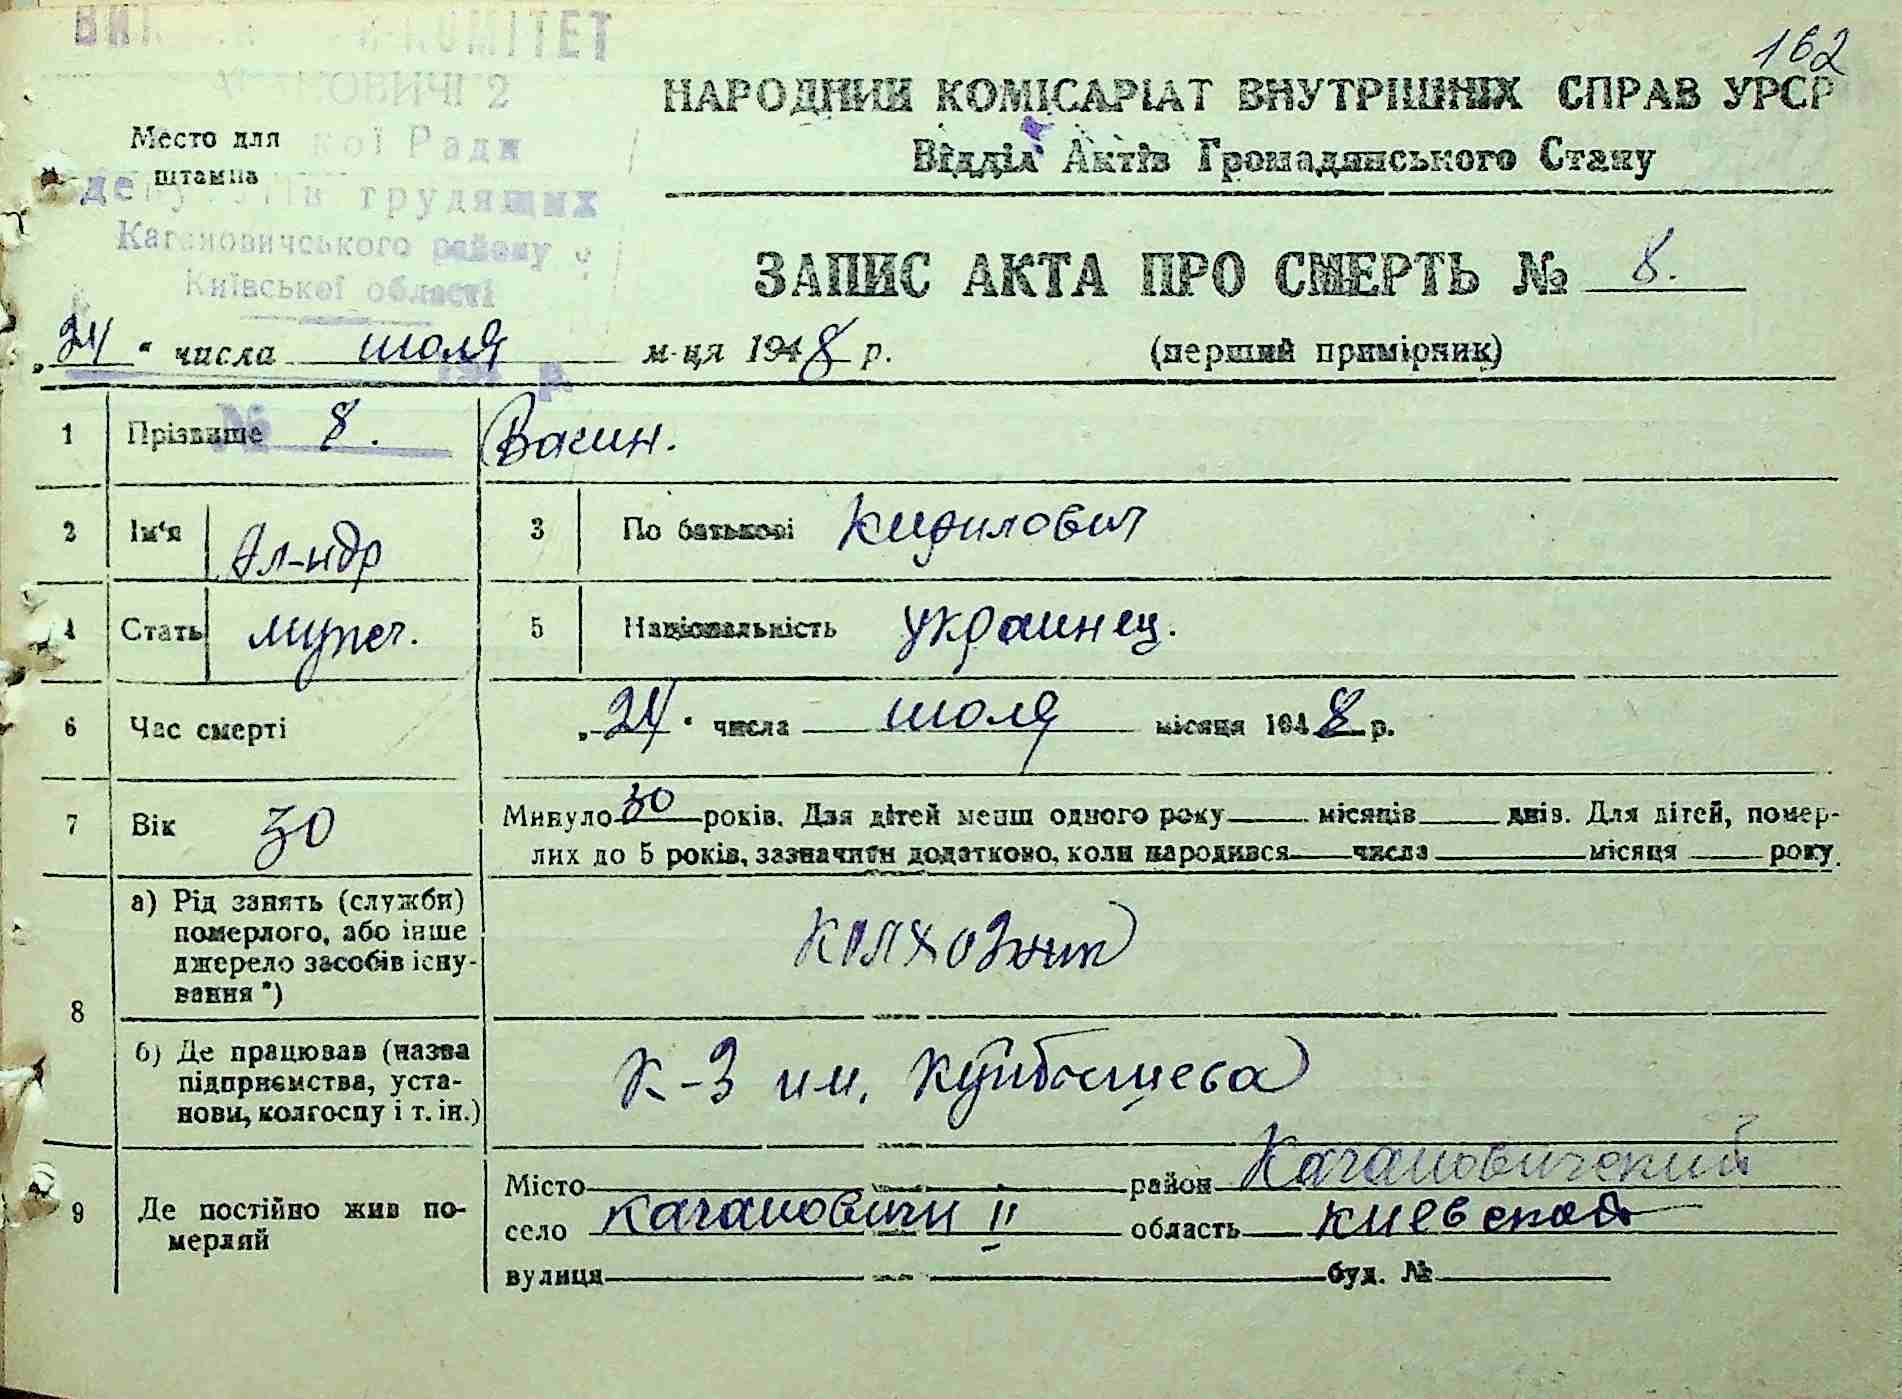 162
КОМІТЕТ
КАГАНОВИЧІ 2
НАРОДНИЙ КОМІСАРІАТ ВНУТРІШНІХ СПРАВ УРСР
Место для
штампа
кої Ради
Відділ Актів Громадянського Стану
депутатів трудящих
Кагановичського району
Київської області
ЗАПИС АКТА ПРО СМЕРТЬ № 8.
„24" числа июля м-ця 1948 р.
(перший примірник)
1 Прізвище № 8. Васин.
2 Ім'я Ал-ндр 3 По батькові Кирилович
4 Стать мужеч. 5 Національність украинец.
6 Час смерті „24" числа июля місяця 1948 р.
7 Вік 30 Минуло 30 років. Для дітей менш одного року місяців днів. Для дітей, помер-
лих до 5 років, зазначити додатково, коли народився числа місяця року.
8 а) Рід занять (служби)
померлого, або інше
джерело засобів існу-
вання *)
колхозник
б) Де працював (назва
підприємства, уста-
нови, колгоспу і т. ін.)
К-з им. Куйбышева
9 Де постійно жив по-
мерлий
Місто район Кагановический
село Кагановичи II область Киевской
вулиця буд. №